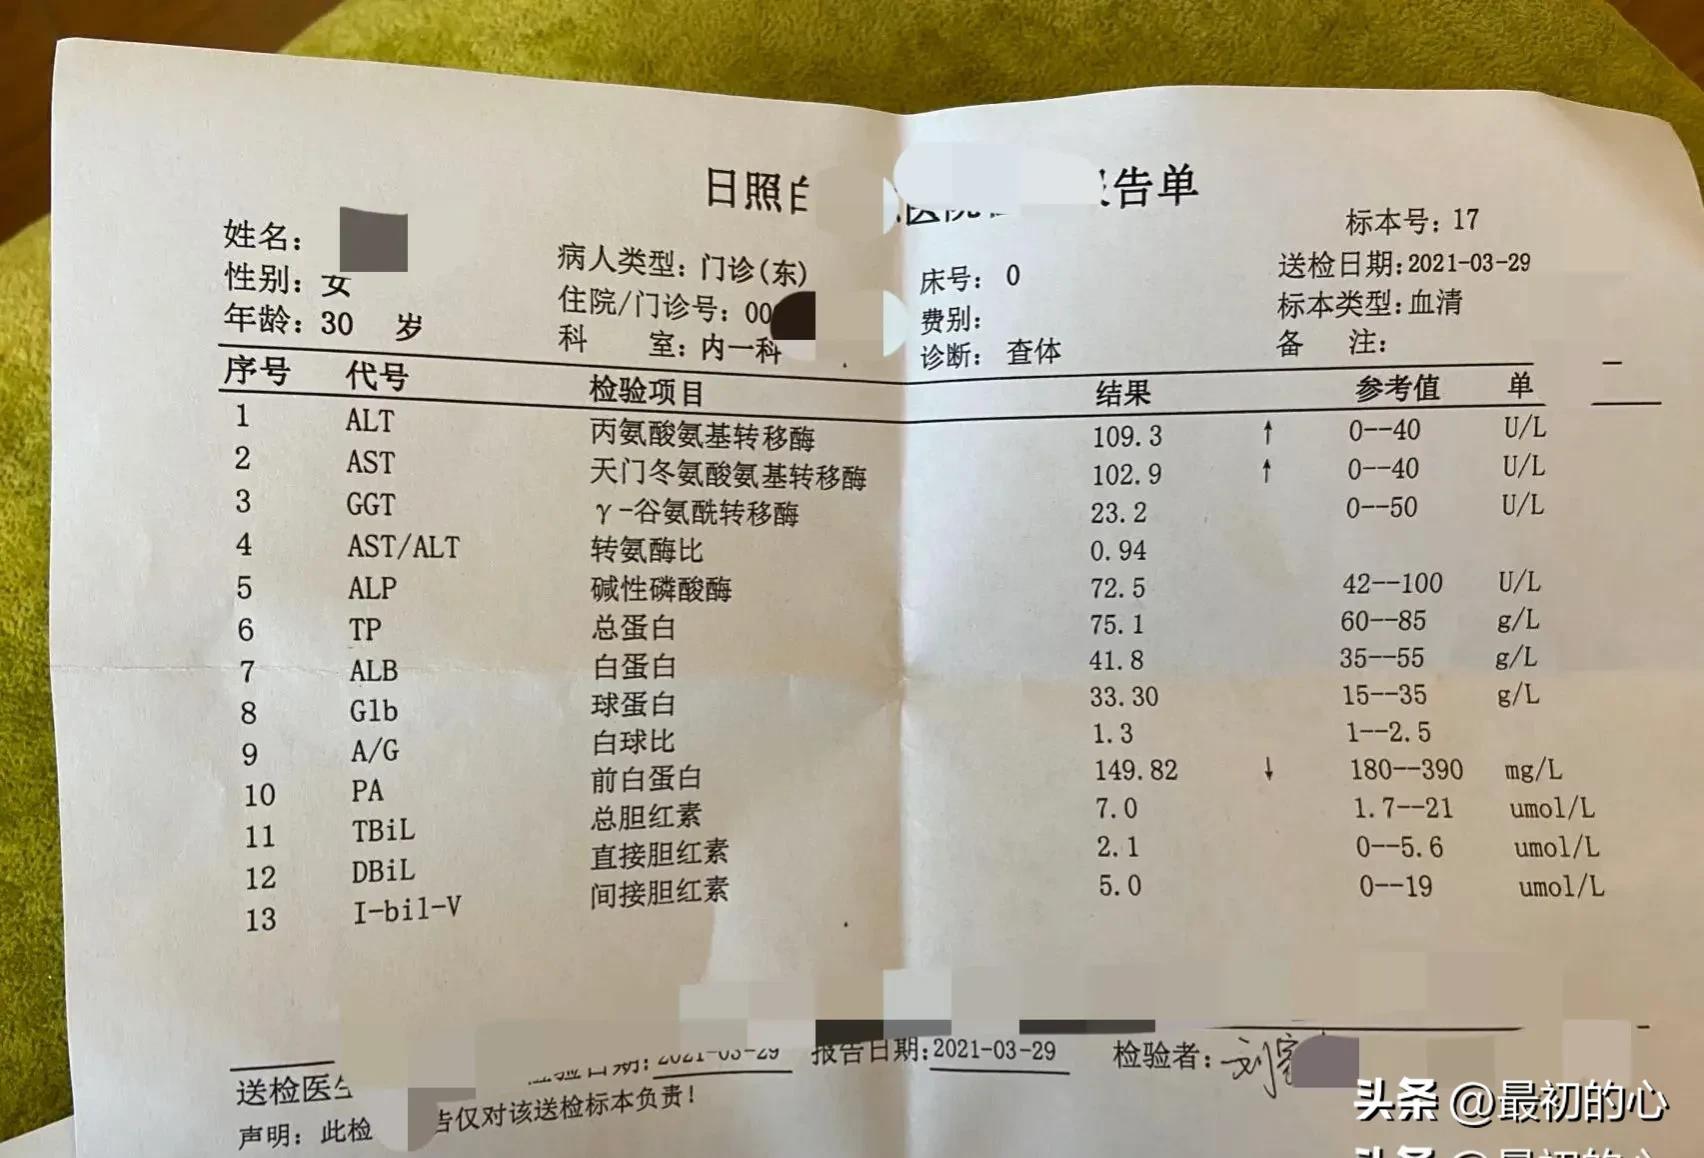 日照 报告单
标本号：17
姓名：
病人类型：门诊(东)
床号： 0
送检日期：2021-03-29
性别：女
住院/门诊号：00
费别：
标本类型：血清
年龄：30 岁
科 室：内一科
诊断： 查体
备 注：
序号 代号 检验项目 结果 参考值 单
1 ALT 丙氨酸氨基转移酶 109.3 ↑ 0--40 U/L
2 AST 天门冬氨酸氨基转移酶 102.9 ↑ 0--40 U/L
3 GGT γ-谷氨酰转移酶 23.2 0--50 U/L
4 AST/ALT 转氨酶比 0.94
5 ALP 碱性磷酸酶 72.5 42--100 U/L
6 TP 总蛋白 75.1 60--85 g/L
7 ALB 白蛋白 41.8 35--55 g/L
8 Glb 球蛋白 33.30 15--35 g/L
9 A/G 白球比 1.3 1--2.5
10 PA 前白蛋白 149.82 ↓ 180--390 mg/L
11 TBiL 总胆红素 7.0 1.7--21 umol/L
12 DBiL 直接胆红素 2.1 0--5.6 umol/L
13 I-bil-V 间接胆红素 5.0 0--19 umol/L
送检医生 检验日期：2021-03-29 报告日期：2021-03-29 检验者：刘
声明：此检 告仅对该送检标本负责！
头条 @最初的心